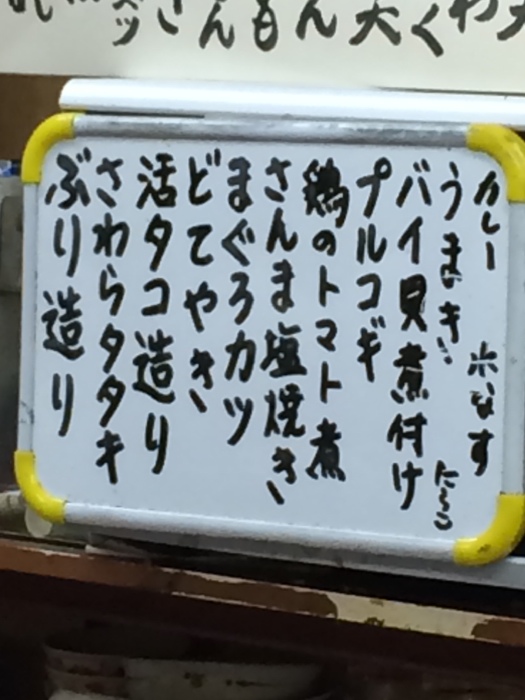 カレー 水なす
うまき たらこ
バイ貝煮付け
プルコギ
鶏のトマト煮
さんま塩焼き
まぐろカツ
どてやき
活タコ造り
さわらタタキ
ぶり造り